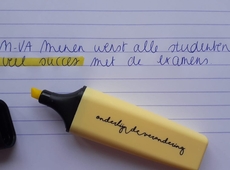 M-VA Menen wenst alle studenten
veel succes met de examens
onderlijn de verandering